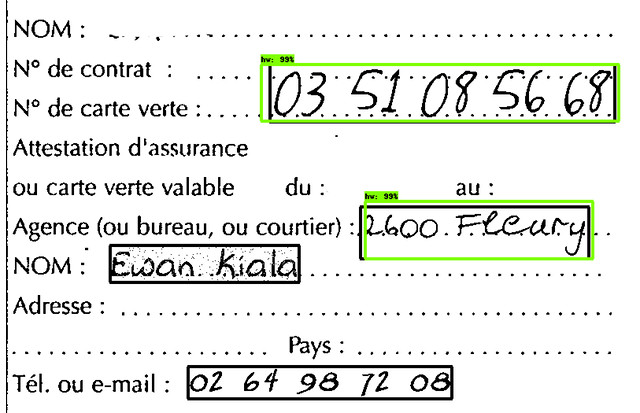 NOM :
N° de contrat :
hw: 99%
03 51 08 56 68
N° de carte verte :
Attestation d'assurance
ou carte verte valable du : au :
hw: 99%
Agence (ou bureau, ou courtier) : 2600 Fleury
NOM : Ewan Kiala
Adresse :
Pays :
Tél. ou e-mail : 02 64 98 72 08